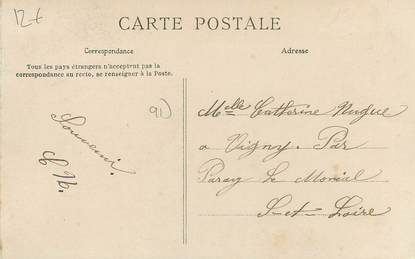 12€
CARTE POSTALE
Correspondance
Adresse
Tous les pays étrangers n'acceptent pas la
correspondance au recto, se renseigner à la Poste.
91)
Souvenir.
Melle Catherine Nugue
a Vigny. Par
Paray Le Monial
S-et-Loire